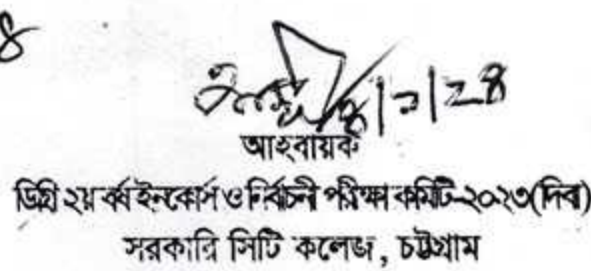 আহবায়ক
ডিগ্রি ২য় বর্ষ ইনকোর্স ও নির্বাচনী পরীক্ষা কমিটি-২০২৩(দিবা)
সরকারি সিটি কলেজ, চট্টগ্রাম